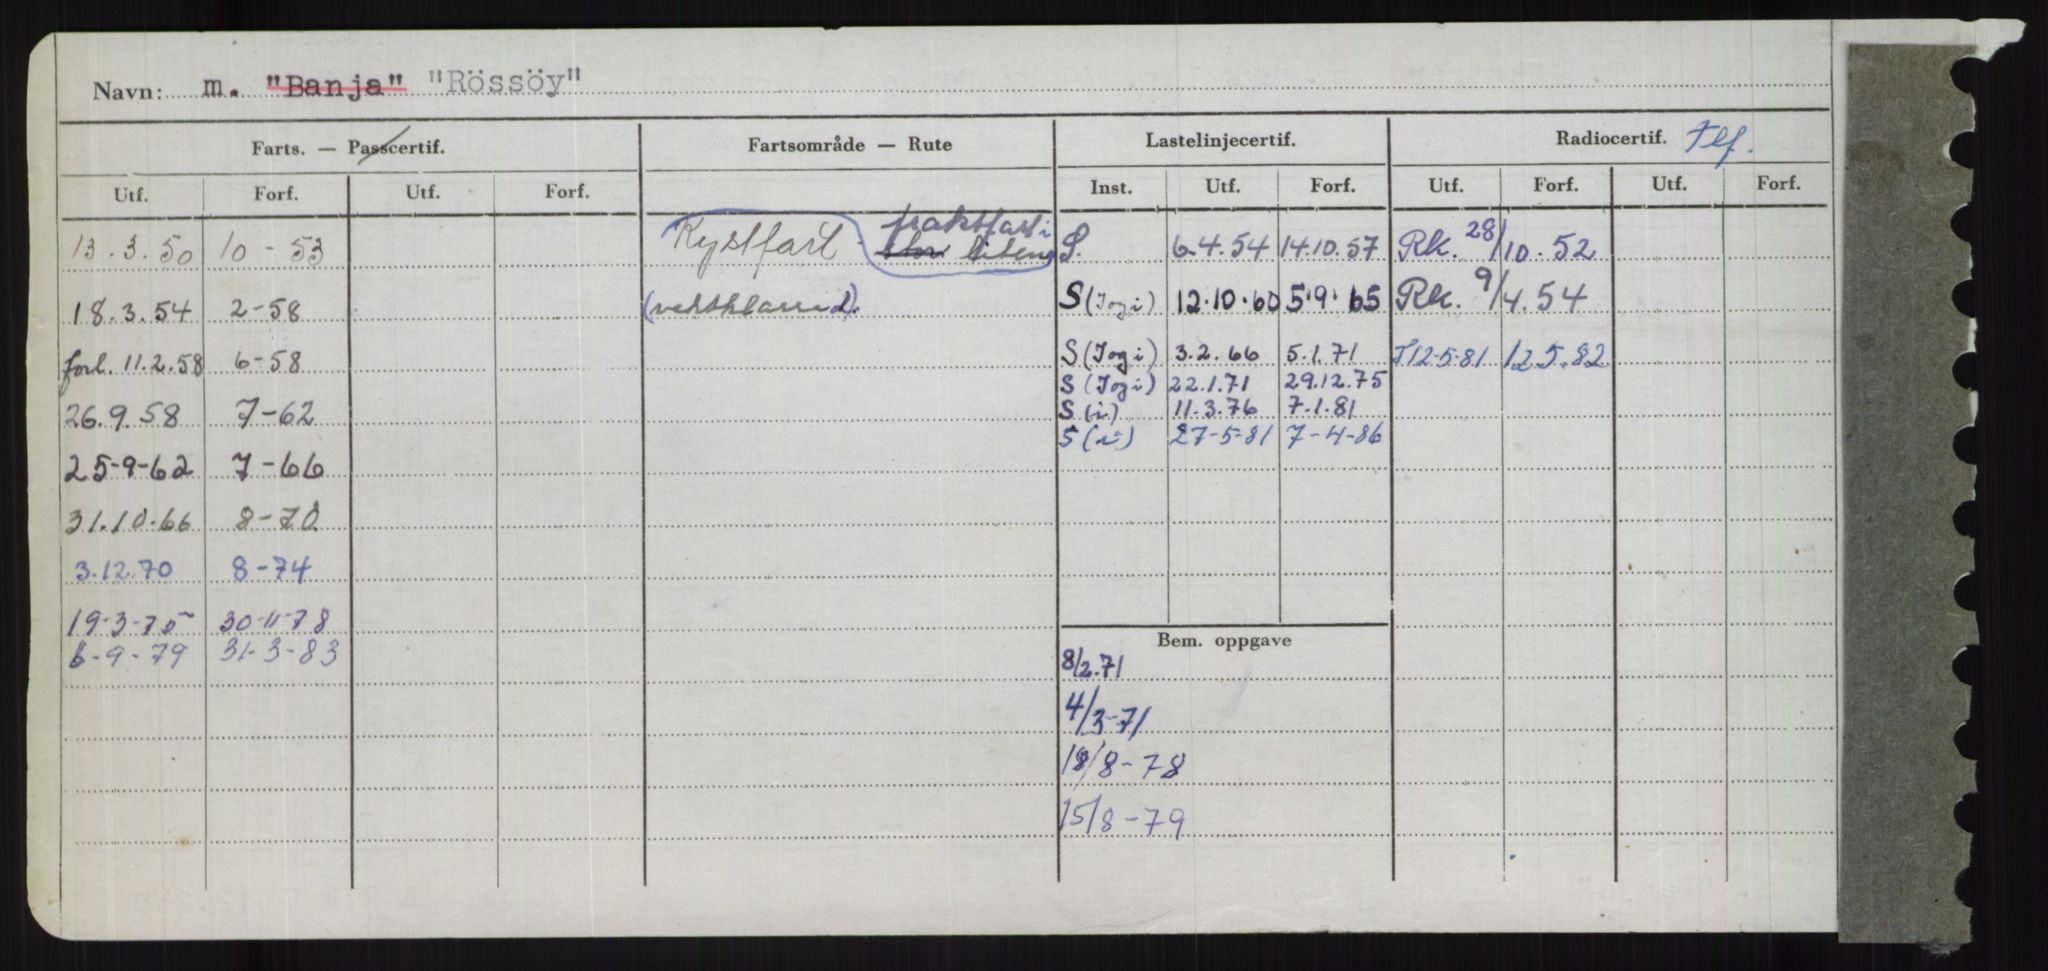 Navn: m. "Banja" "Rössöy"
Farts. — Passcertif. Fartsområde — Rute Lastelinjecertif. Radiocertif. Tlf.
Utf. Forf. Utf. Forf. Inst. Utf. Forf. Utf. Forf. Utf. Forf.
13.3.50 10-53 Kystfart - fraktfart i liten S. 6.4.54 14.10.57 Rk. 28/10.52
18.3.54 2-58 S (I og i) 12.10.60 5.9.65 Rk. 9/4.54
forl. 11.2.58 6-58 S (I og i) 3.2.66 5.1.71 T12-5-81 12.5.82
S (I og i) 22.1.71 29.12.75
26.9.58 7-62 S (i) 11.3.76 7.1.81
S (i) 27-5-81 7-4-86
25-9-62 7-66
31.10.66 8-70
3.12.70 8-74
19-3-75 30-11-78
6-9-79 31-3-83
Bem. oppgave
8/2.71
4/3-71
18/8-78
15/8-79